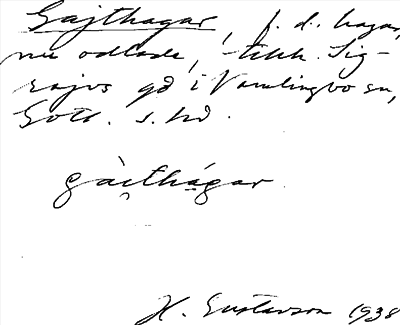 Gajthagar, f. d. hagar,
nu odlade, tillh. Sig-
rajvs gd i Vamlingbo sn,
Gotl. s. hd.
gàithágar
H. Gustavson 1938